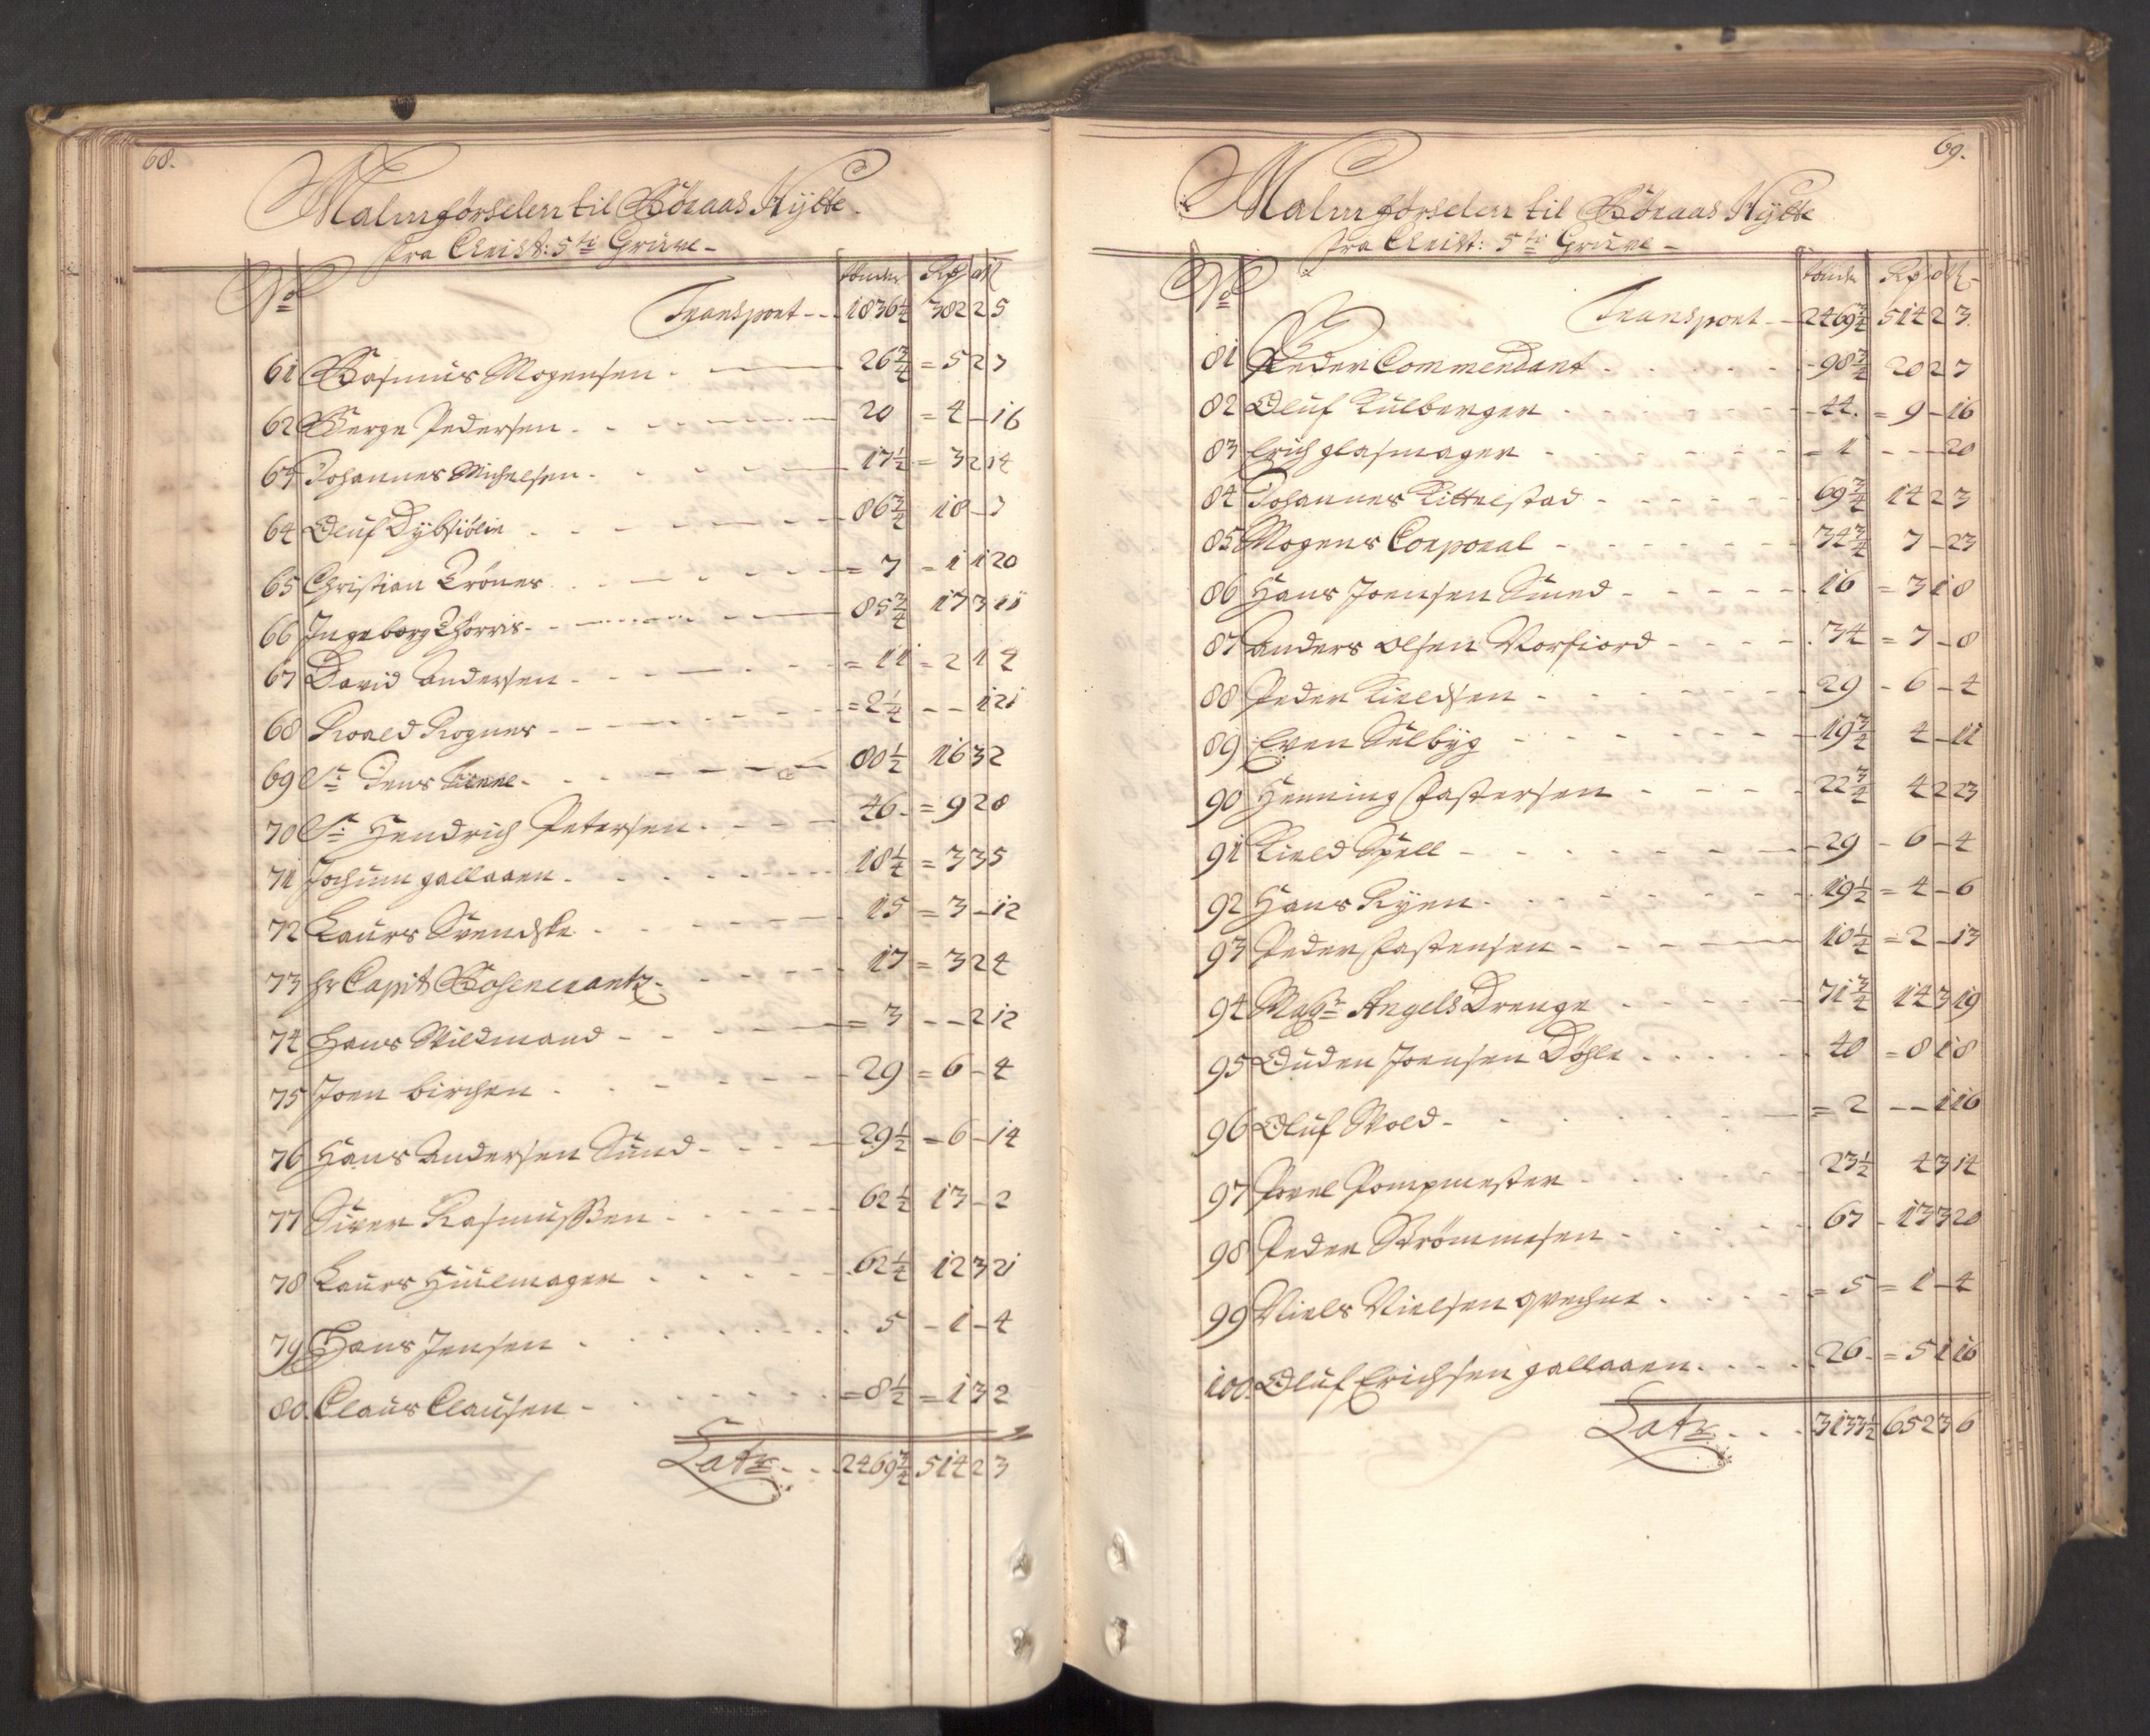 68.
Malmförselen til Röraas Hÿtte.
fra Christ: 5ti Gruve-
No tönder Rdr ort ß
Transport - - 1836¼ 382 2 5
61 Rasmus Mogensen . 26¾ = 5 2 7
62 Berge Pedersen . 20 = 4 - 16
63 Johannes Michelsen . 17½ = 3 2 14
64 Oluf Dybsiölin 86¾ 18 - 7
65 Christian Trönes = 7 = 1 1 20
66 Ingeborg Thorris - 85¾ 17 3 11
67 David Andersen - = 11 = 2 1 4
68 Roald Rognes - = 2¼ - - 1 21
69 Sr: Jens - 80½ 16 3 2
70 Sr: Hendrich Petersen . 46 . = 9 2 8
71 Jochum gallaaen . 18¼ = 3 3 5
72 Laurs Svendske . 15 = 3 - 12
73 hr Capit Rosencrantz - 17 = 3 2 4
74 Hans Wildmand - - = 3 - - 2 12
75 Joen birchen . 29 = 6 - 4
76 Hans Andersen Sund - 29½ = 6 - 14
77 Siver Rasmussen . 62½ 13 - 2
78 Laurs Hiulmager . 62¼ 12 3 21
79 Hans Jensen . 5 - 1 - 4
80. Claus Clausen - = 8½ = 1 3 2
Latr. . . 2469¾ 514 2 3
69.
Malmförselen til Röraas Hÿtte
fra Christ: 5ti Gruve -
No tönder Rdr ort ß
Transport - 2469¾ 514 2 3
81 Peder Commendant . 98¾ 20 2 7
82 Oluf Kulberger . 44. = 9 - 16
83 Erich glasmager - = 1 - - - 20
84 Johannes Kittelstad - 69¾ 14 2 3
85 Mogens Corporal - 34¾ 7 - 23
86 Hans Joensen Smed - 16 = 3 1 8
87 Anders Olsen Norfiord - 34 = 7 - 8
88 Peder Kieldsen - 29 - 6 - 4
89 Even Selbÿg - 19¾ 4 - 11
90 Henning Castersen - 22¾ 4 2 23
91 Kield Spell - 29 - 6 - 4
92 Hans Ryen . 19½ = 4 - 6
93 Peder Castensen - 10¼ = 2 - 13
94 Magr: Angels Drenge 71¾ 14 3 19
95 Auden Joensen Döhle . 40 = 8 1 8
96 Oluf Wold - = 2 - - 1 16
97 Povel Pompmester 23½ 4 3 14
98 Peder Strömmesen - 67 - 13 3 20
99 Niels Nielsen qvechne . = 5 = 1 - 4
100. Oluf Erichsen gallaaen . 26 . = 5 1 16
Latr. . . 3133½ 652 3 6